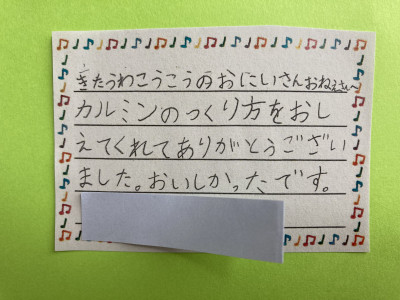 きたうわこうこうのおにいさんおねえさんへ
カルミンのつくり方をおし
えてくれてありがとうござい
ました。おいしかったです。